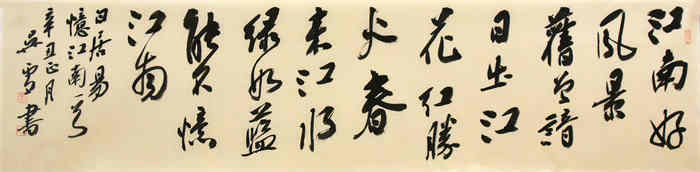 江南好
風景
舊曾諳
日出江
花红勝
火春
来江水
绿如藍
能不憶
江南
白居易
憶江南一首
辛丑正月
吴雪書